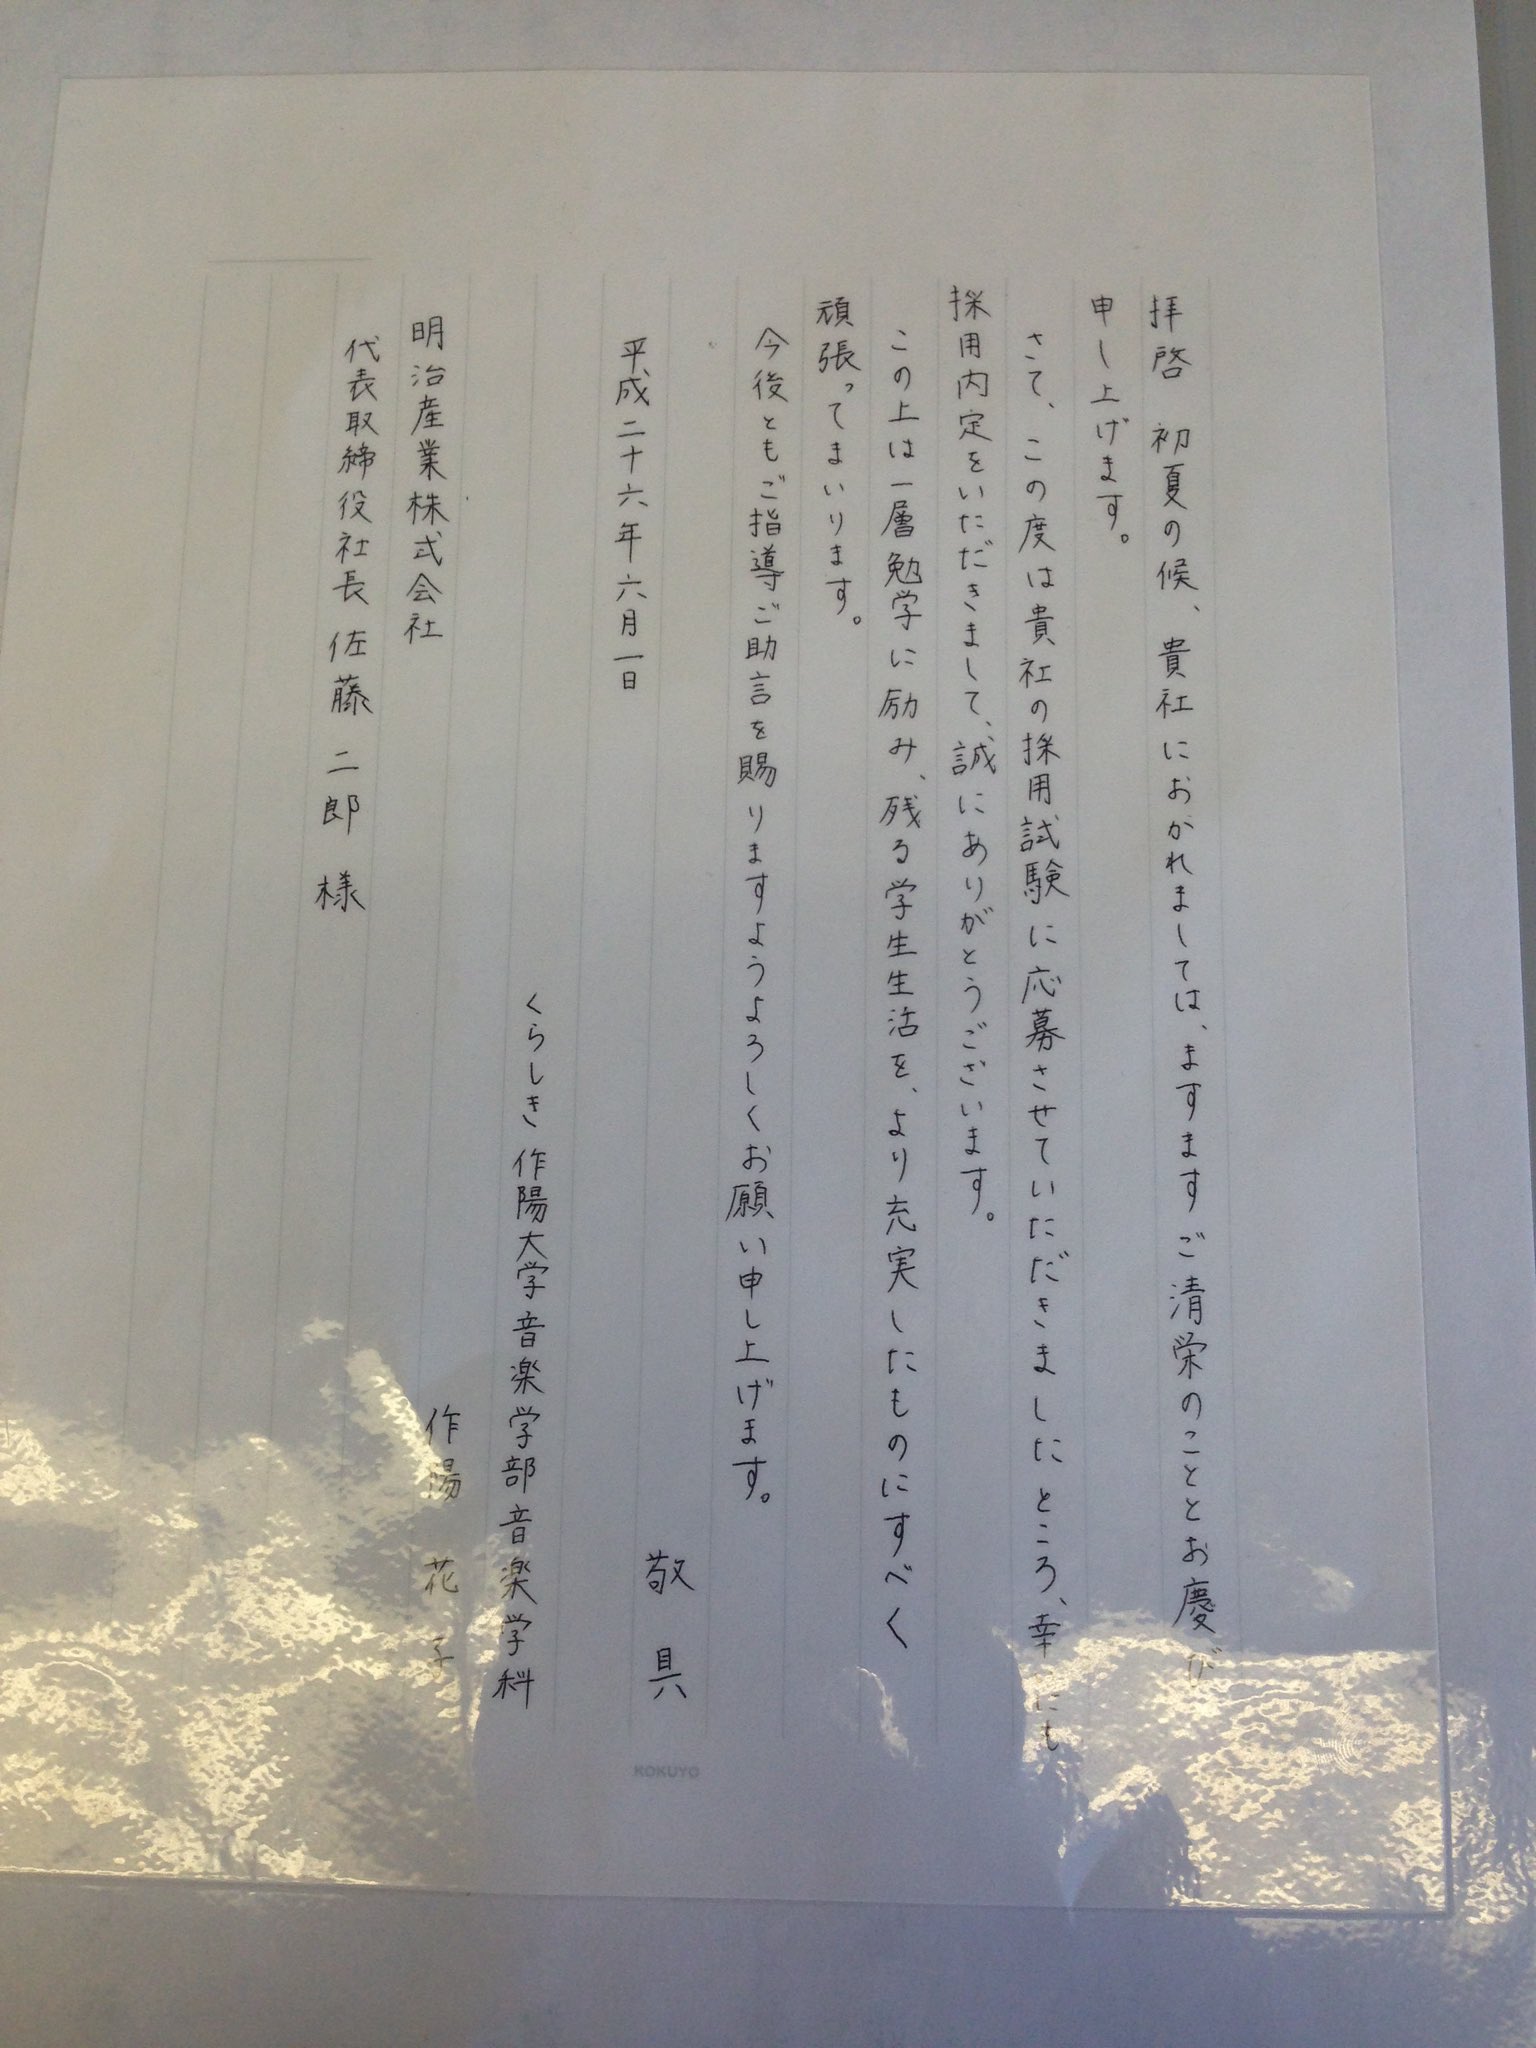 拝啓　初夏の候、貴社におかれましては、ますますご清栄のこととお慶び
申し上げます。
さて、この度は貴社の採用試験に応募させていただきましたところ、幸にも
採用内定をいただきまして、誠にありがとうございます。
この上は一層勉学に励み、残る学生生活を、より充実したものにすべく
頑張ってまいります。
今後ともご指導ご助言を賜りますようよろしくお願い申し上げます。
敬具
平成二十六年六月一日
くらしき作陽大学音楽学部音楽学科
作陽花子
明治産業株式会社
代表取締役社長　佐藤二郎　様
KOKUYO